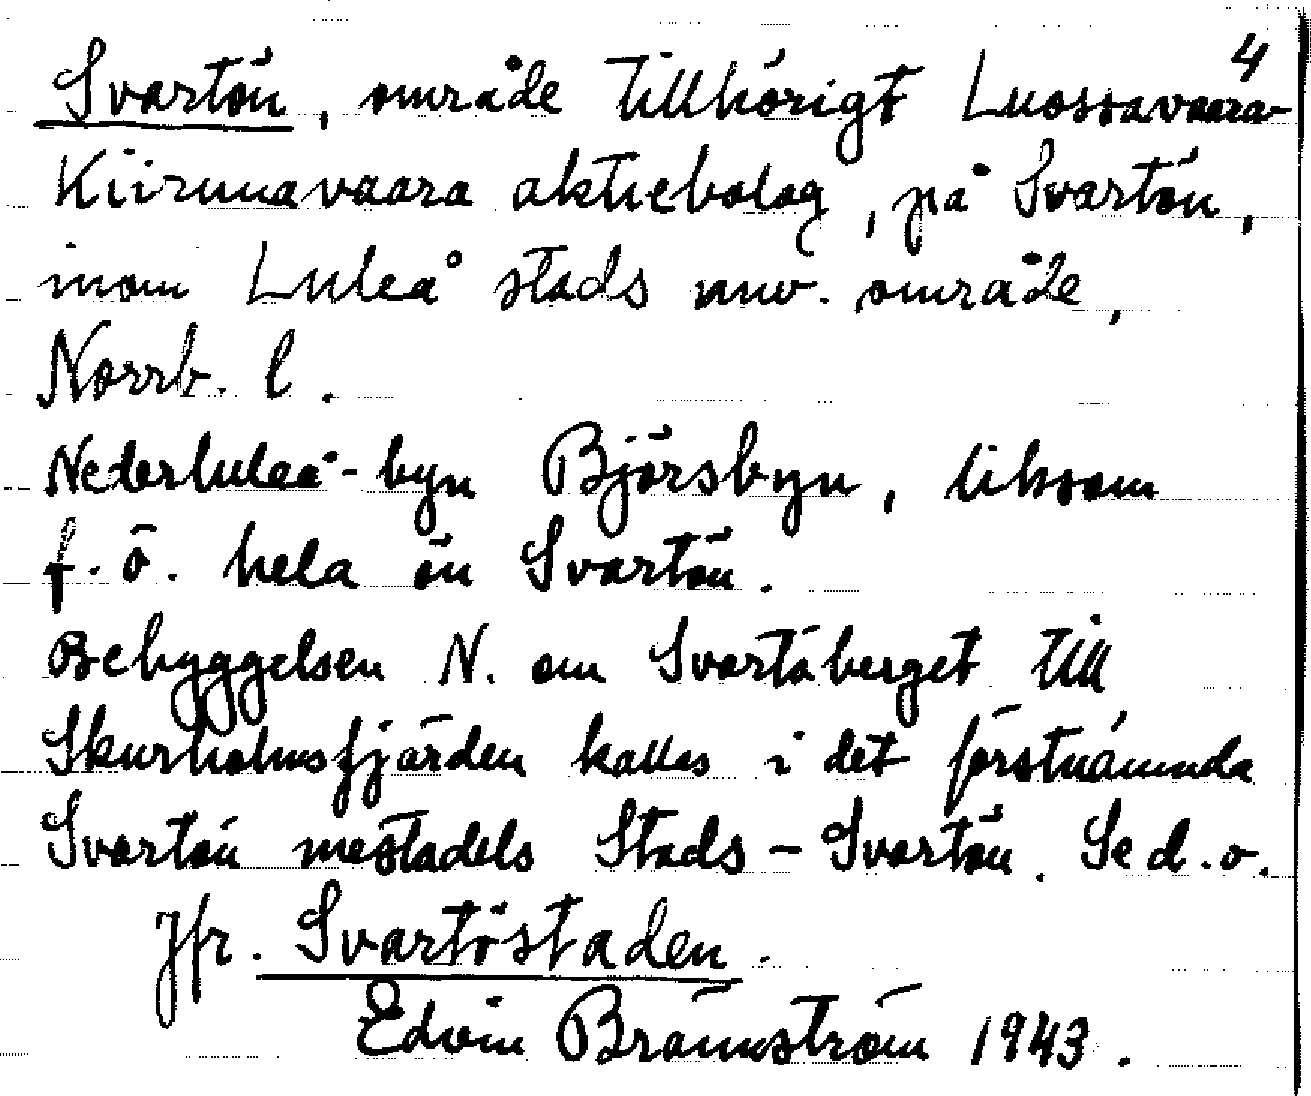 4
Svartön, område tillhörigt Luossavaara-
Kiirunavaara aktiebolag, på Svartön,
inom Luleå stads nuv. område,
Norrb. l.
Nederluleå-byn Björsbyn, liksom
f.ö. hela ön Svartön.
Bebyggelsen N. om Svartöberget till
Skurholmsfjärden kallas i det förstnämnda
Svartön mestadels Stads-Svartön. Se d.o.
Jfr. Svartöstaden.
Edvin Brännström 1943.